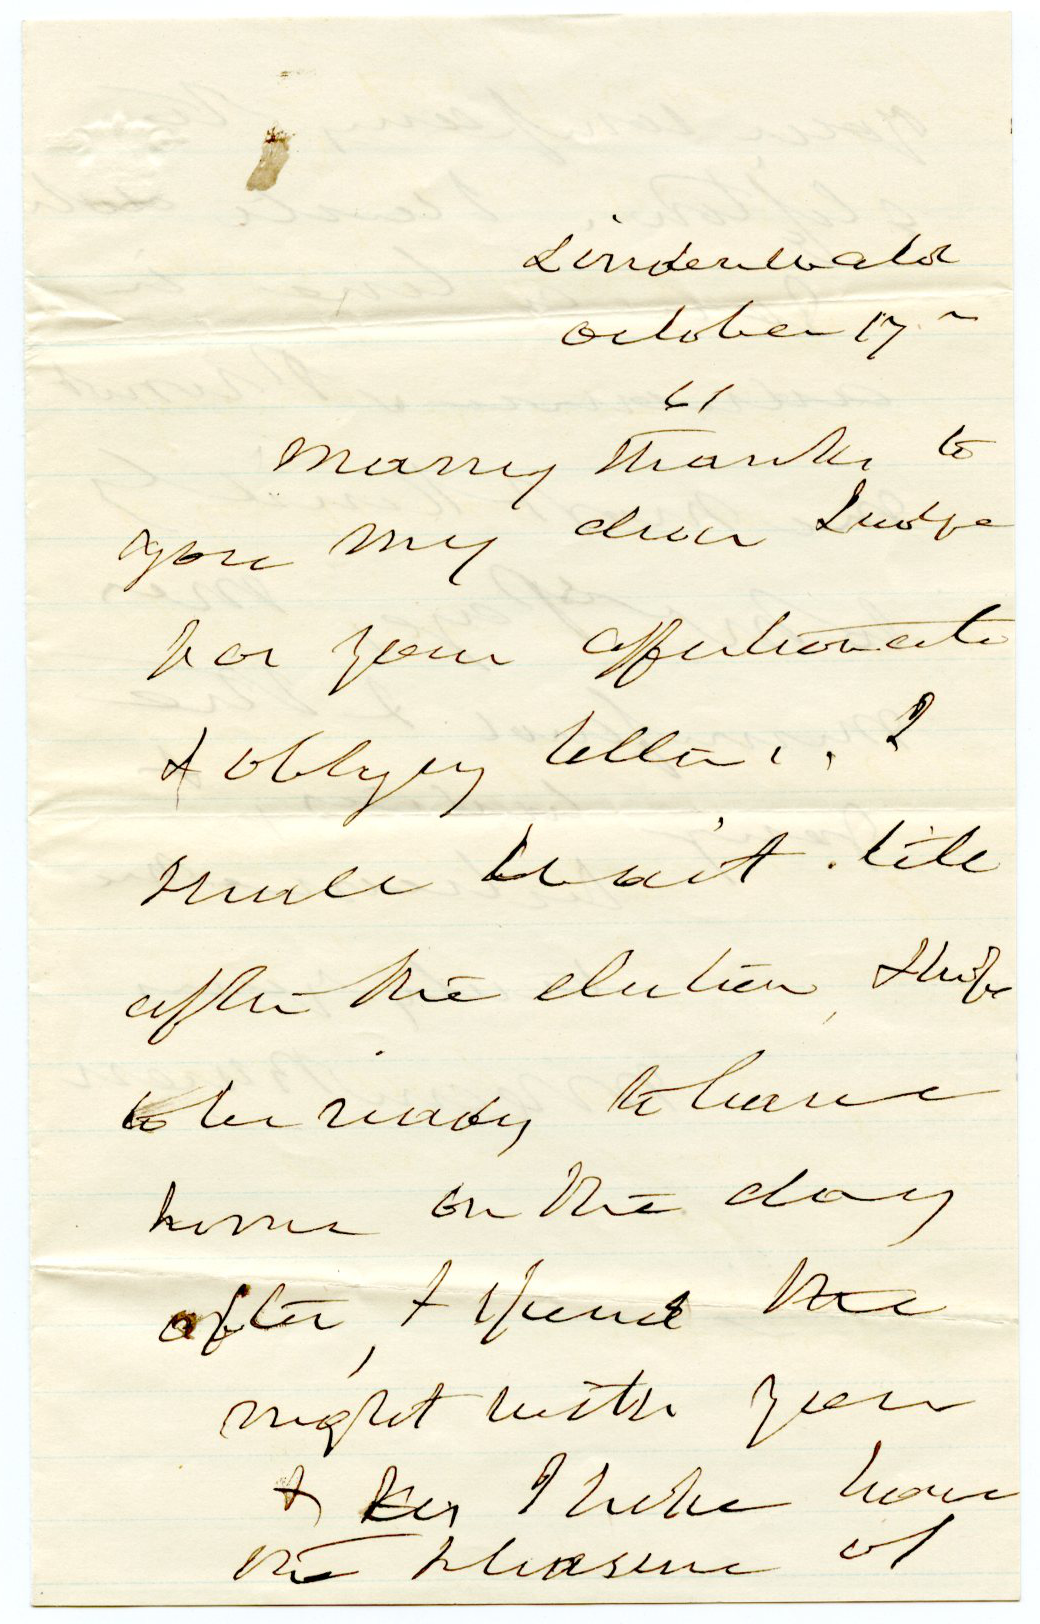 Lindenwald
October 17
61
Many thanks to
you my dear Judge
for your affectionate
& obliging letter. I
shall wait till
after the election, & hope
to be ready to leave
home on the day
after, & spend the
night with you
& I hope have
the pleasure of